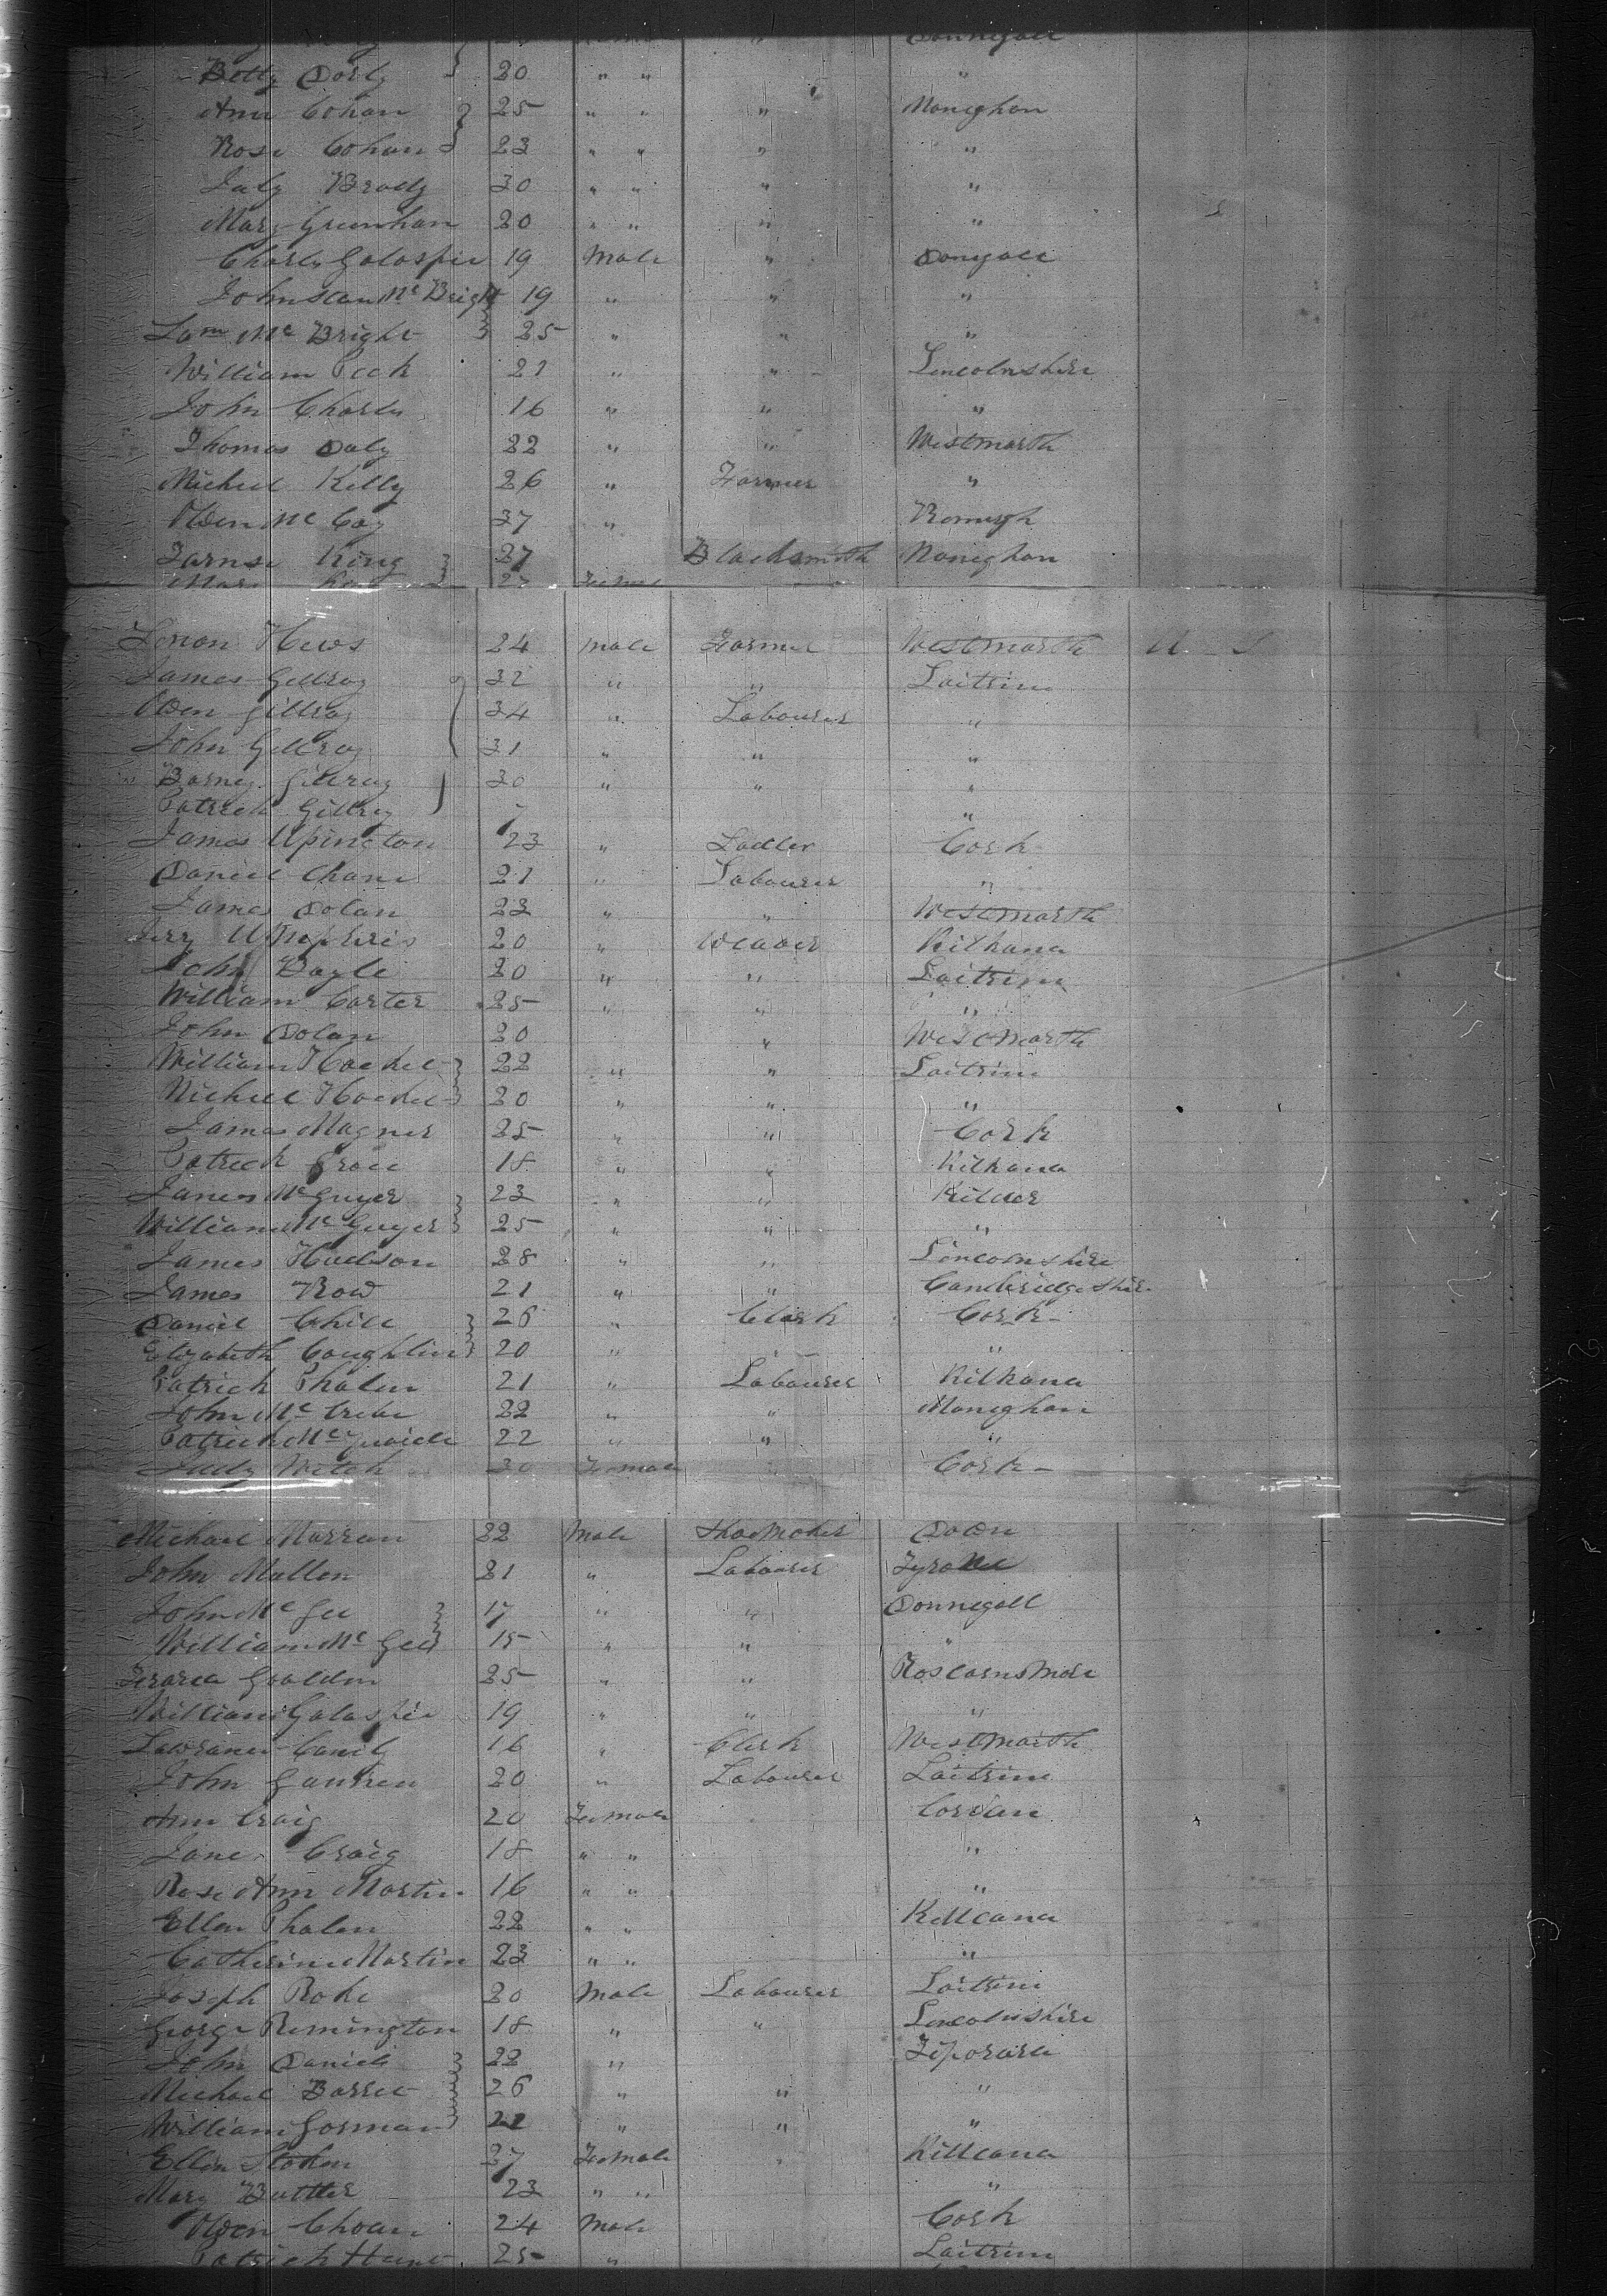 Donnegall
Betty Dorty 20 " "  "
Ann Cohan 25 " " " Moneghan
Rose Cohan 23 " " " "
July Brady 30 " " " "
Mary Greenhan 20 " " " "
Charls Galaspie 19 Male " Donyall
John McBright 19 " " "
Sam Mc Bright 25 " " "
William Peck 21 " " Lincolnshire
John Charls 16 " " "
Thomas Daly 22 " " Westmarth
Micheel Kelly 26 " Farmer "
Owen Mc Coy 37 "
King 27 Blacksmith Moneghan
27
Hews 24 Male Farmer Westmarth U S
James Gillroy 32 " " Laitrim
Owen Gillroy 34 " Labourer "
John Gillroy 31 " " "
Barney Gillroy 30 " " "
Patrick Gillroy 7 "
James Upington 23 " Sadler Cork
Daniel Chane 21 " Labourer "
James Dolan 23 " " Westmarth
20 " Weaver Kilkana
John Boyle 20 " " Laitrim
William Carter 25 " " "
John Dolan 20 " Westmarth
William Hackel 22 " " Laitrim
Michael Hackel 20 " " "
James Magner 25 " " Cork
Patrick Grace 18 " " Kilkana
James McGuyer 23 " " Kilder
William Mc Guyer 25 " " "
James Hudson 28 " " Lincolnshire
James Row 21 " " Cambridgeshire
Daniel Chill 26 " Clark Cork
Elizabeth Coughlin 20 " "
Patrick Phalen 21 " Labourer Kilkana
John Mc Crebe 22 " " Moneghan
Patrick Mc 22 " " "
30 Female Cork
Michael Marran 22 Male Shoemaker Down
John Mullen 21 " Labourer Tyrone
John Mc Gee 17 " " Donnegall
William Mc Gee 15 " " "
25 " " Roscarnsmore
William Galaspie 19 " " "
Lawrance 16 " Clark Westmarth
John 20 " Labourer Laitrim
Ann Craig 20 Female
Jane Craig 18 " " "
Rose Ann Martin 16 " " "
Ellen Phalen 22 " " Killcana
Catherine Martin 23 " " "
Joseph Roke 20 Male Labourer Laitrim
George Remington 18 " " Lincolnshire
John Daniels 22 " Tiporara
Michael Barret 26 " " "
William Gorman 22 " " "
Ellen Stoken 27 Female Killcana
Mary Buttler 23 " " "
Owen Choan 24 Male Cork
Patrick 25 " Laitrim